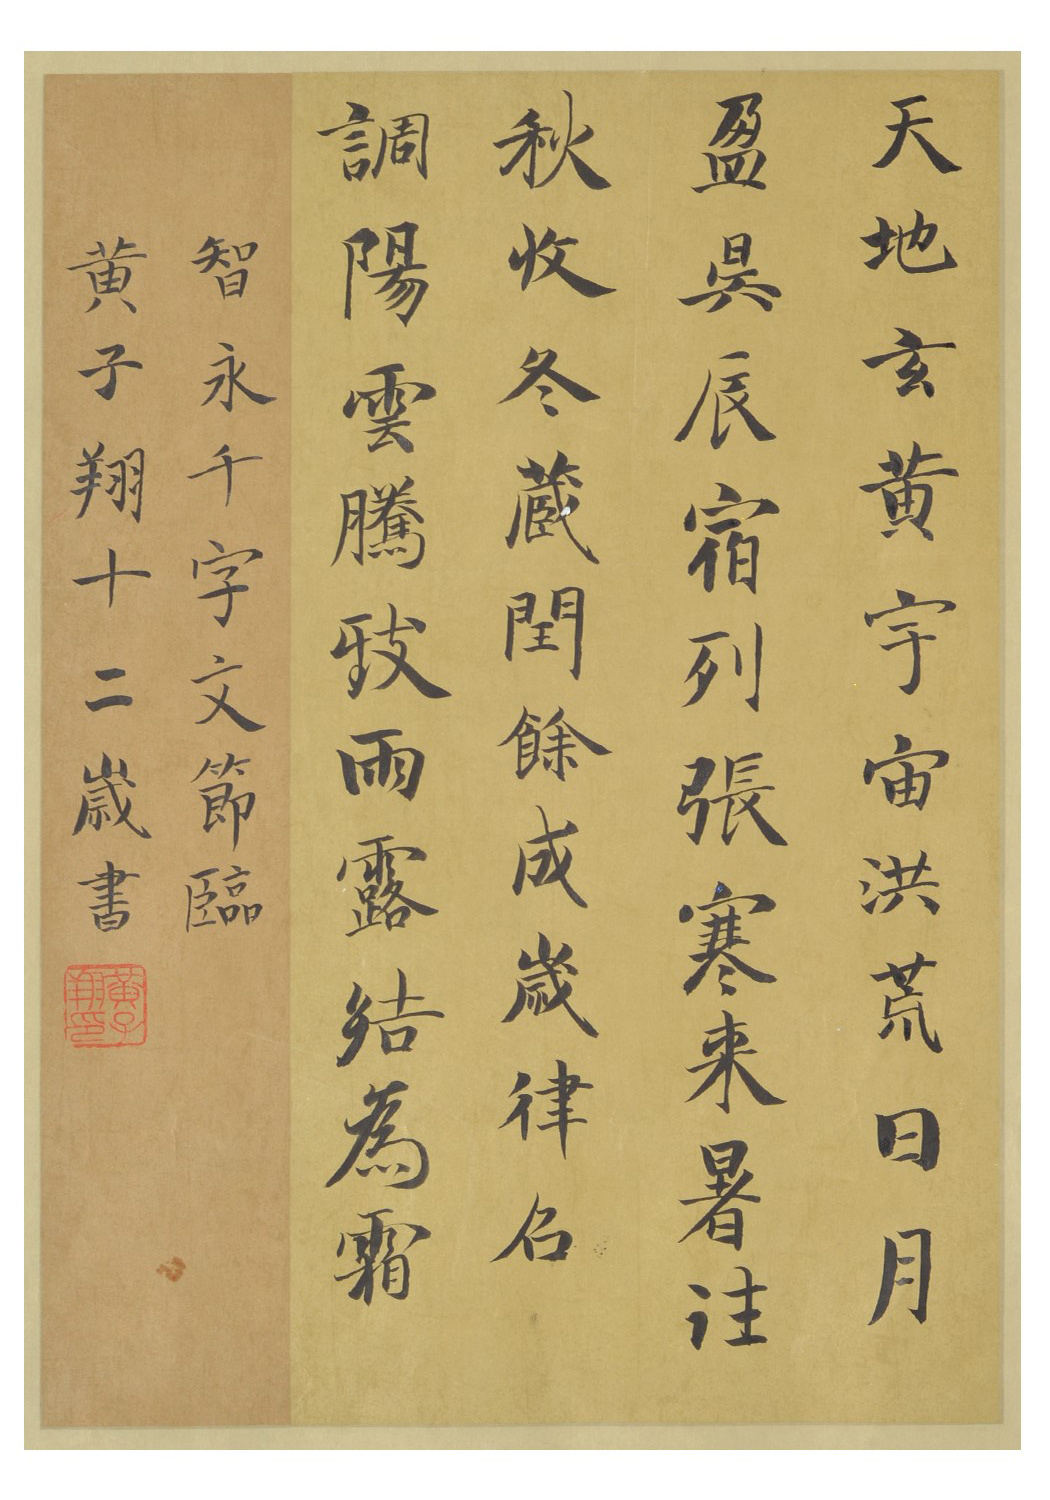 天地玄黄宇宙洪荒日月
盈昃辰宿列張寒来暑往
秋收冬蔵閏餘成歳律召
調陽雲騰致雨露結為霜
智永千字文節臨
黄子翔十二歳書
黄子翔印